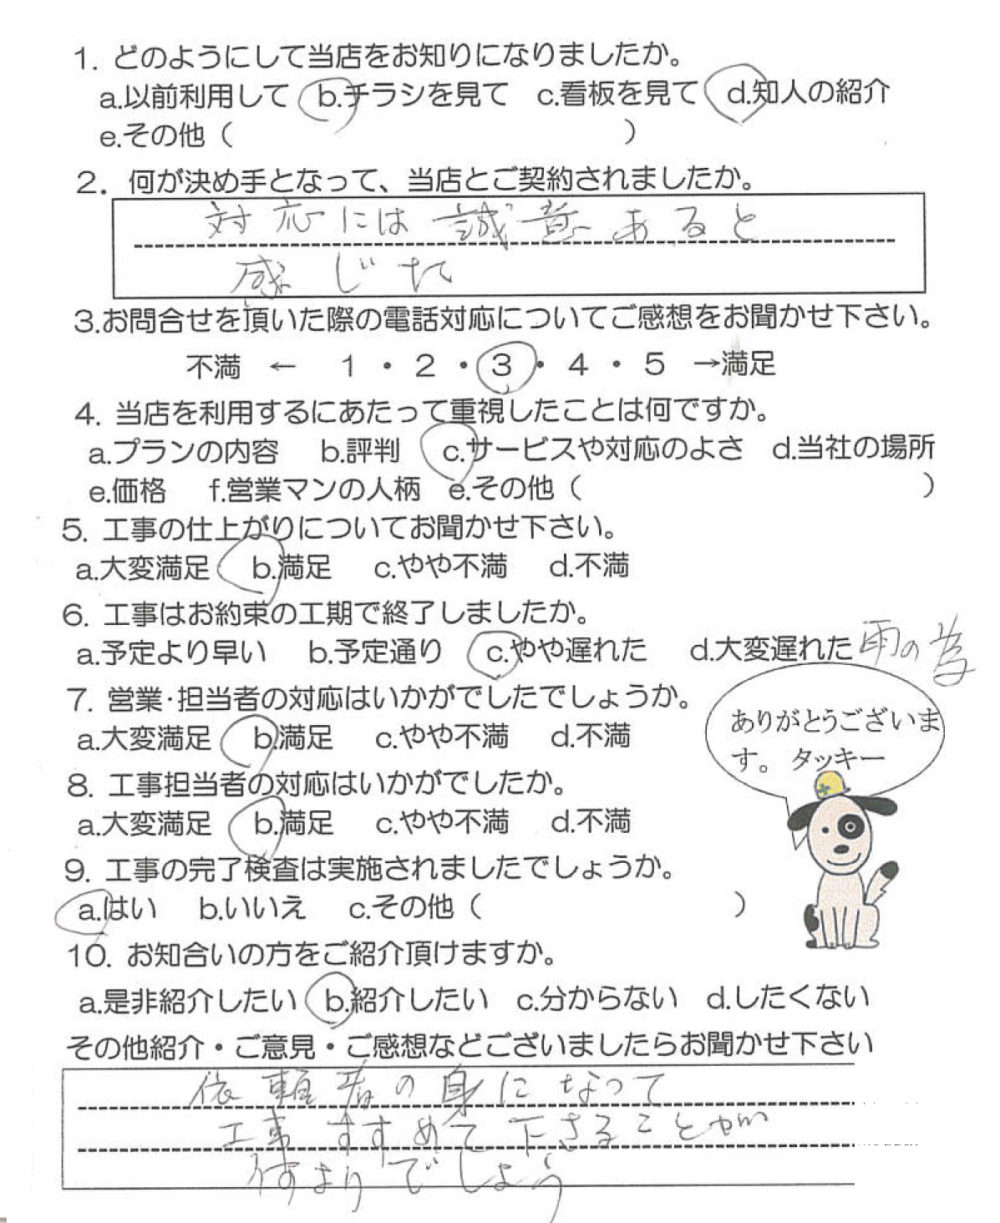 1. どのようにして当店をお知りになりましたか。
a.以前利用して b.チラシを見て c.看板を見て d.知人の紹介
e.その他（ ）
2. 何が決め手となって、当店とご契約されましたか。
対応には誠意あると
感じた
3.お問合せを頂いた際の電話対応についてご感想をお聞かせ下さい。
不満 ← 1・2・3・4・5 →満足
4. 当店を利用するにあたって重視したことは何ですか。
a.プランの内容 b.評判 c.サービスや対応のよさ d.当社の場所
e.価格 f.営業マンの人柄 e.その他（ ）
5. 工事の仕上がりについてお聞かせ下さい。
a.大変満足 b.満足 c.やや不満 d.不満
6. 工事はお約束の工期で終了しましたか。
a.予定より早い b.予定通り c.やや遅れた d.大変遅れた 雨の為
7. 営業・担当者の対応はいかがでしたでしょうか。
a.大変満足 b.満足 c.やや不満 d.不満
ありがとうございま
す。 タッキー
8. 工事担当者の対応はいかがでしたか。
a.大変満足 b.満足 c.やや不満 d.不満
9. 工事の完了検査は実施されましたでしょうか。
a.はい b.いいえ c.その他（ ）
10. お知合いの方をご紹介頂けますか。
a.是非紹介したい b.紹介したい c.分からない d.したくない
その他紹介・ご意見・ご感想などございましたらお聞かせ下さい
依頼者の身になって
工事すすめて下さることが
何よりでしょう